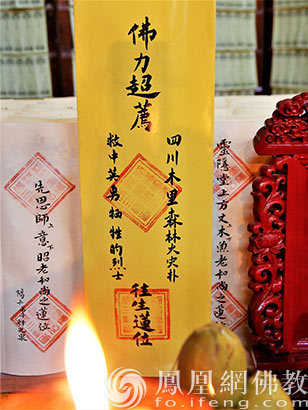 佛力超薦
四川木里森林火灾扑
救中英勇牺牲的烈士
往生蓮位
靈隱堂上方丈木魚老和尚之蓮位
先恩師上意昭老和尚之蓮位
鳳凰網佛教
fo.ifeng.com